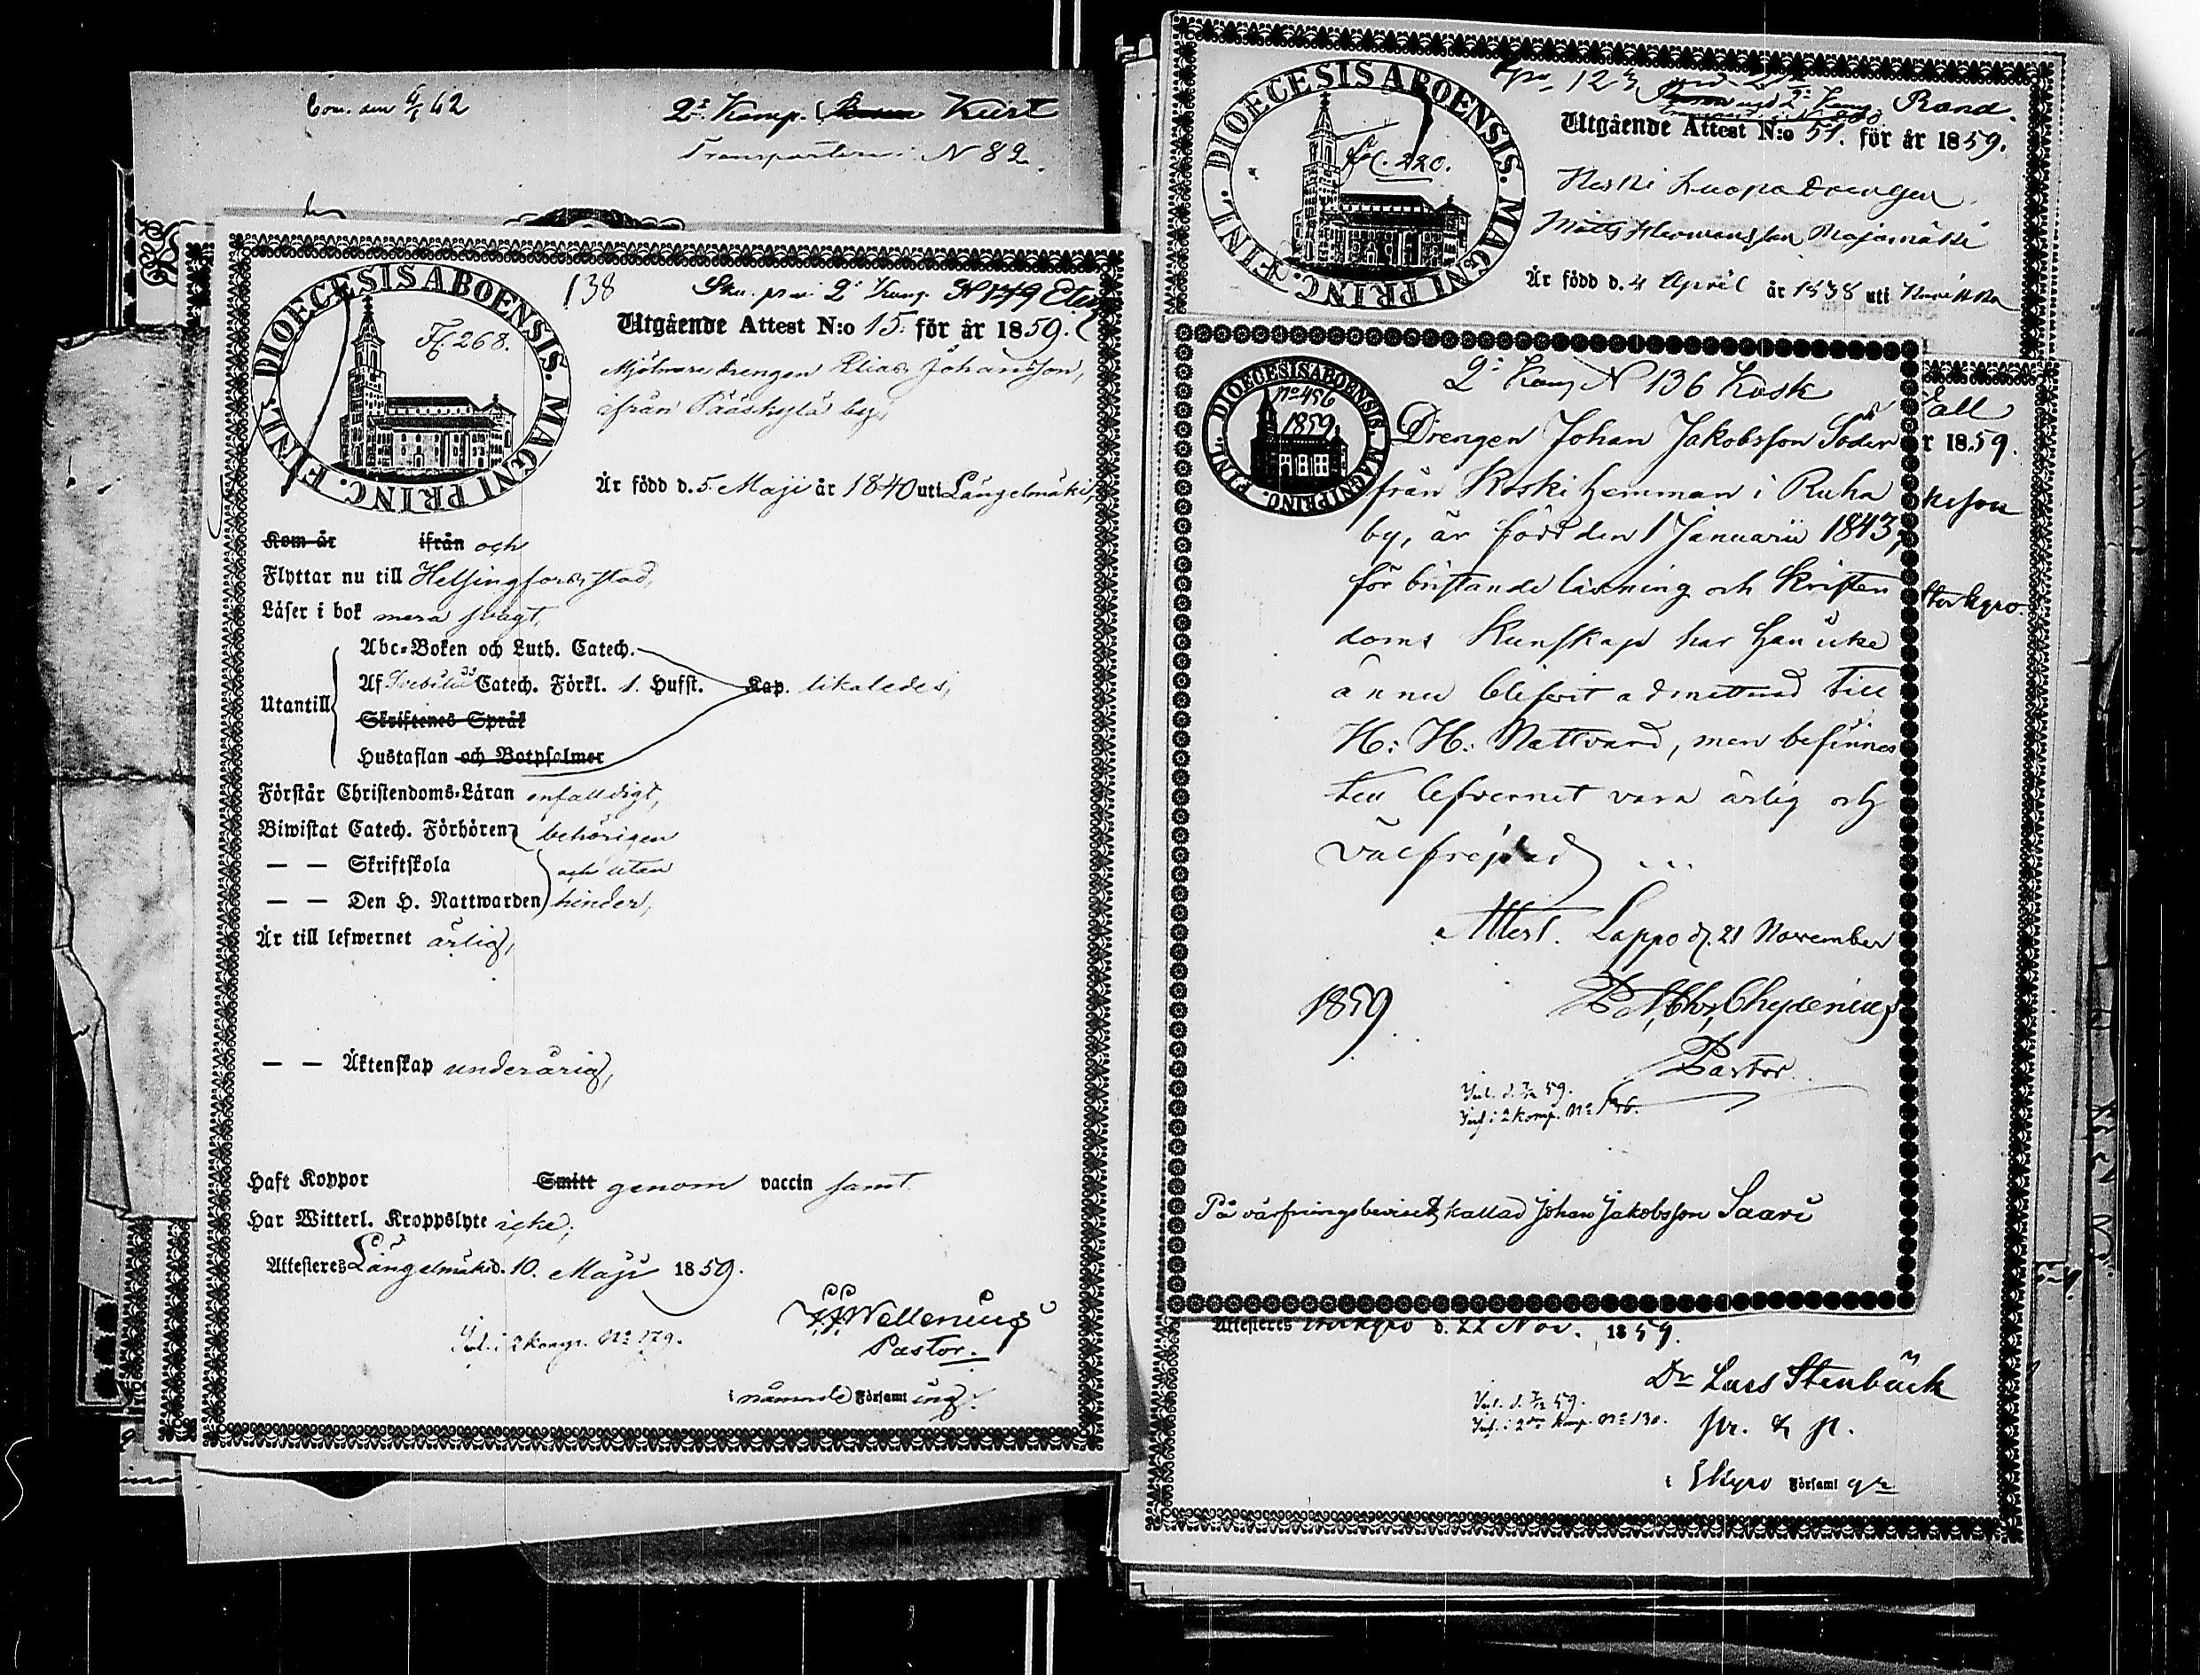 2: Komp. Kurt
N 82.
DIOECESIS ABOENSIS. MAGNI PRINC. FINL.
268.
138
2: Komp. N 179
Utgående Attest N:o 15. för år 1859.
Mjölnare drengen Elias Johansson,
ifrån Pääskylä by,
Är född d. 5. Maji år 1840 uti Längelmäki,
Kom år ifrån och
Flyttar nu till Helsingfors stad,
Läser i bok mera svagt,
Abc-Boken och Luth. Catech.
Utantill Af Svebilii Catech. Förkl. 1. Hufst. Kap. likaledes,
Skriftenes Språk
Hustaflan och Botpsalmer
Förstår Christendoms-Läran enfaldigt,
Biwistat Catech. Förhören behörigen
— — Skriftskola och utan
— — Den H. Nattwarden hinder,
Är till lefwernet ärlig,
— — Äktenskap underårig,
Haft Koppor Smitt genom vaccin samt
Har Witterl. Kroppslyte icke,
Attesteres Längelmäki d. 10. Maji 1859.
Wallenius
Pastor.
i 2 Komp. No 179.
i nämnde Församling.
DIOECESIS ABOENSIS. MAGNI PRINC. FINL.
Fol. 220.
Rand.
Utgående Attest N:o 51. för år 1859.
Heski Luopa Drengen
Matts Hermansson Rajamäki
Är född d. 4 April år 1838 uti
1859.
Storkyro.
2: Komp N 136 Kosk
DIOECESIS ABOENSIS. MAGNI PRINC. FINL.
No 456
1859.
Drengen Johan Jakobsson Söder
från Koski hemman i Ruha
by, är född den 1 Januarii 1843,
för bristande läsning och Kristen
doms Kunskap har han icke
ännu blifvit admitterad till
H: H: Nattvard, men befinnes
till lefvernet vara ärlig och
välfrejdad
Attest. Lappo d. 21 November
1859
Chydenius
Pastor
i 2 Komp. No 136.
På värfningsbeviset kallad Johan Jakobsson Saari
Attesteres Storkyro d. 22 Nov. 1859.
Dr Lars Stenbäck
pr. & p.
i 2 Komp. No 130.
i Skyro Församl